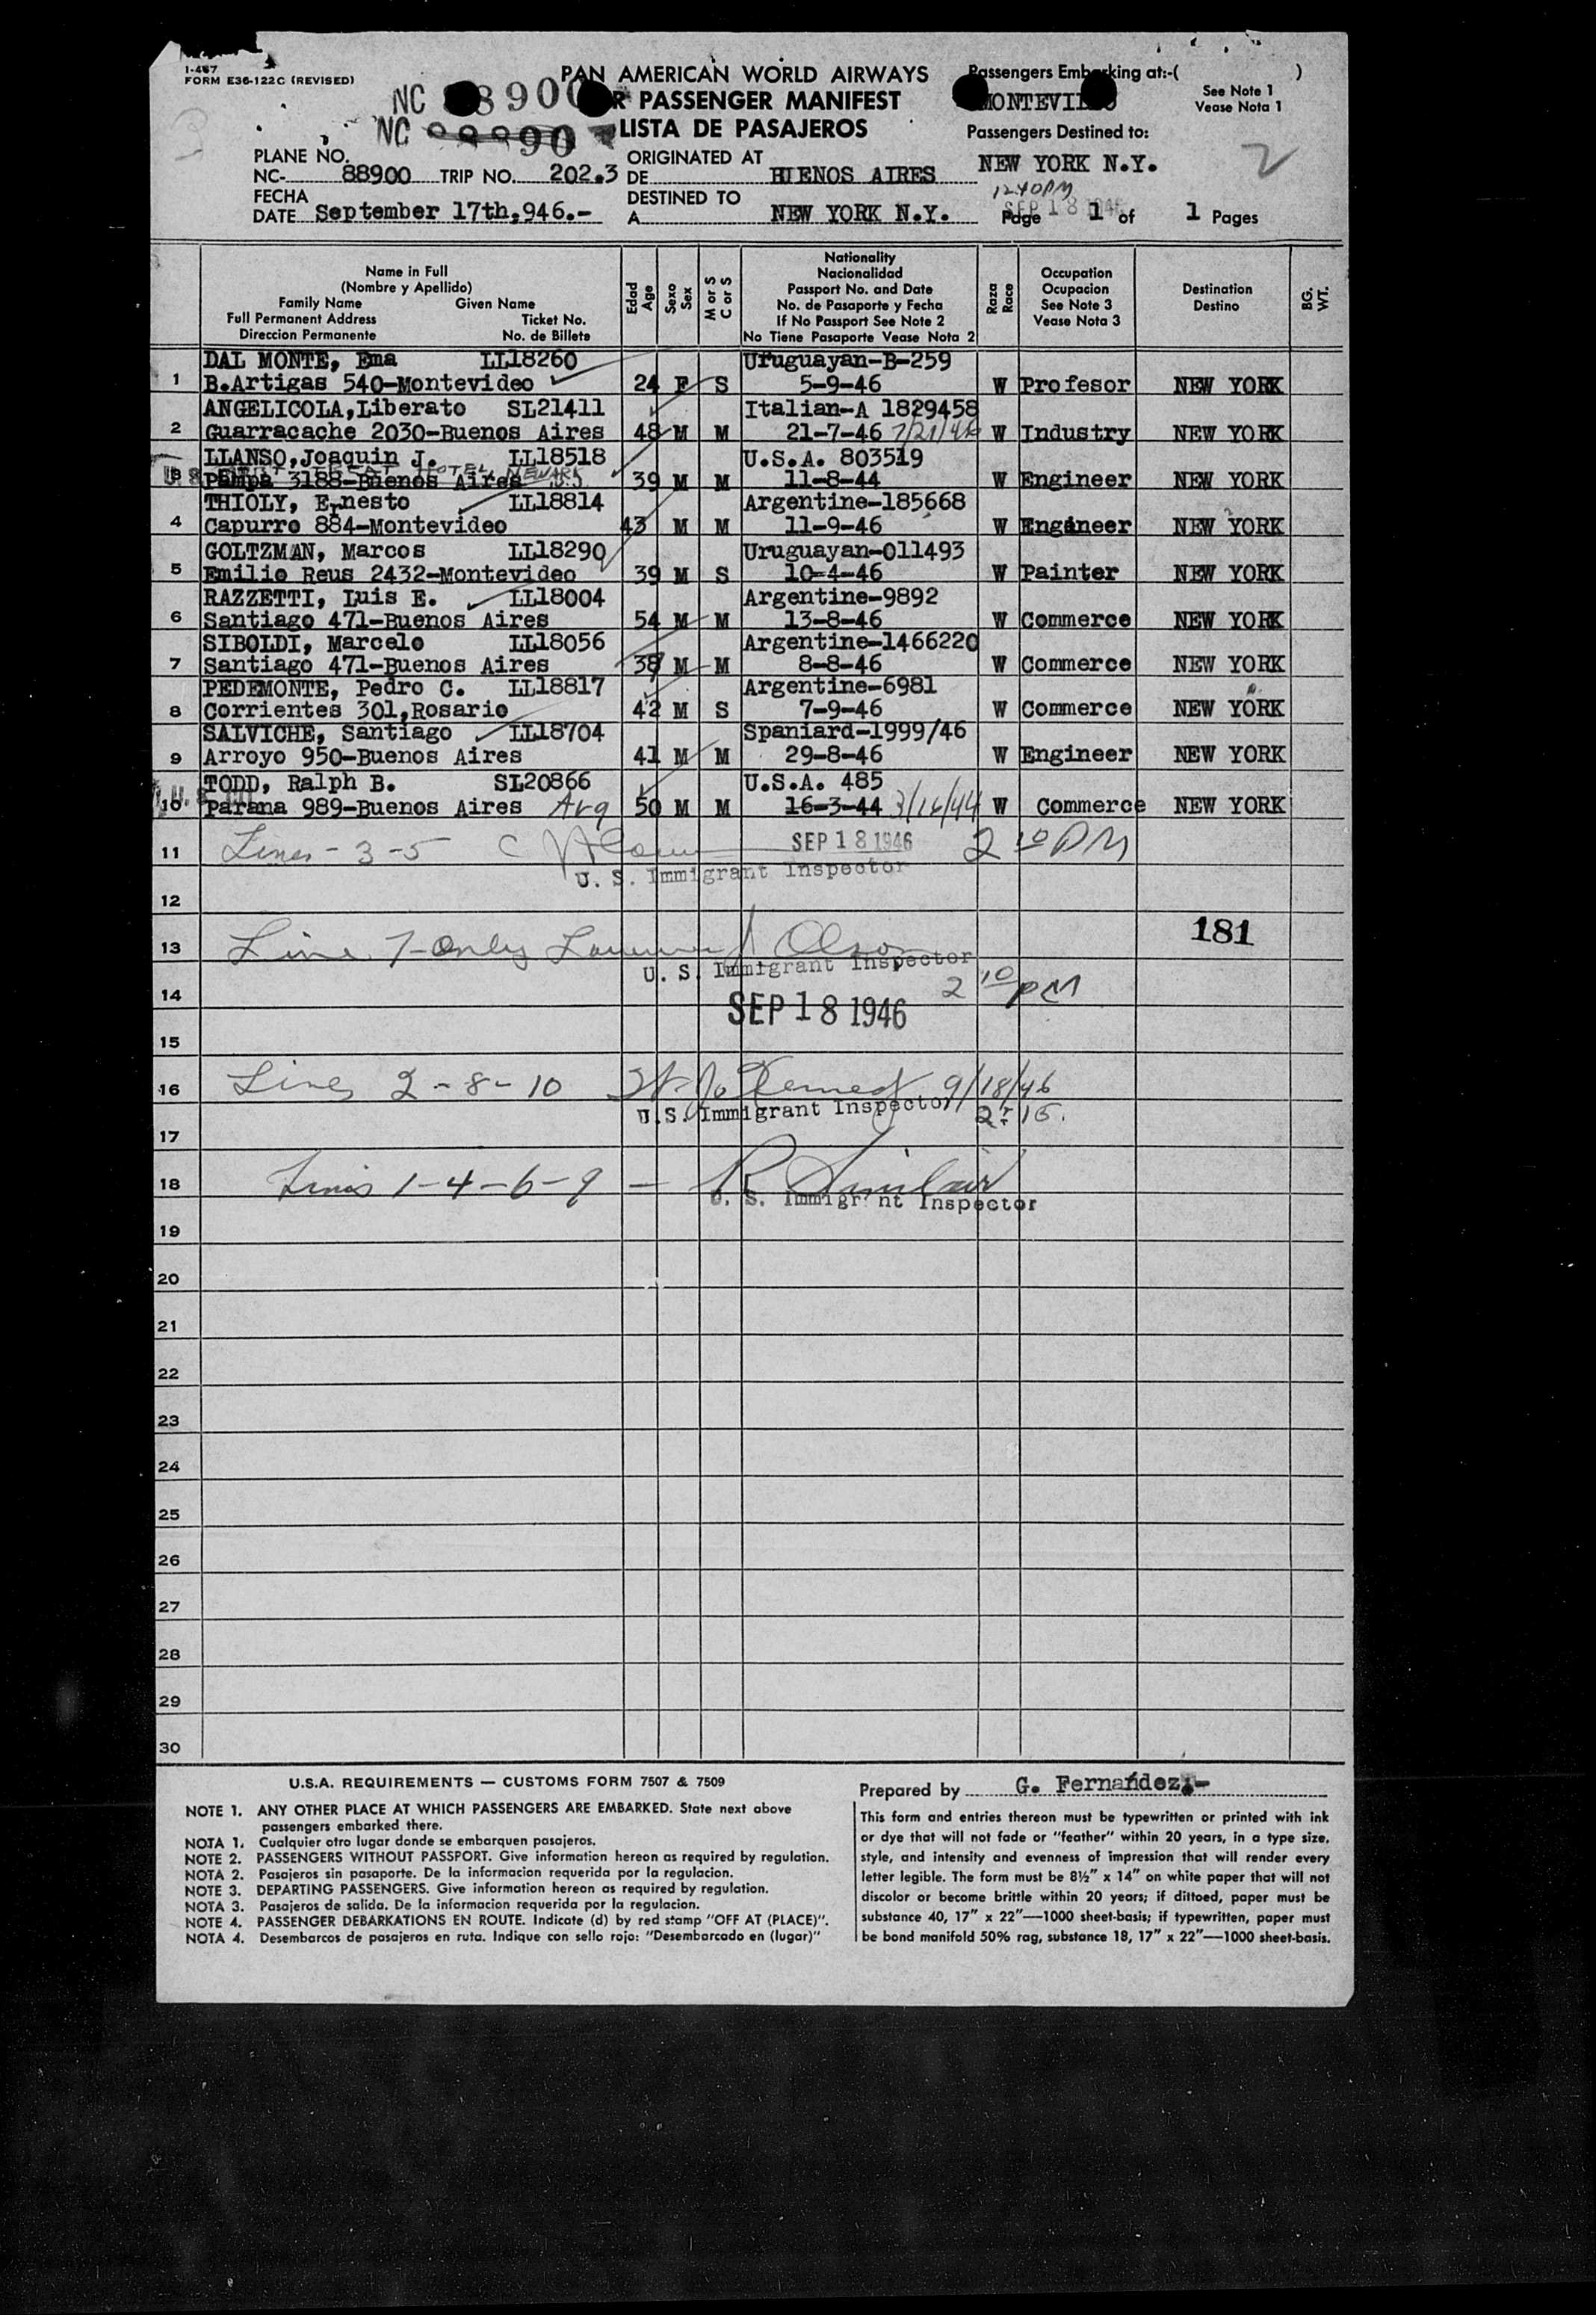 I-467
FORM E36-122C (REVISED)
PAN AMERICAN WORLD AIRWAYS
PASSENGER MANIFEST
LISTA DE PASAJEROS
NC 8900
NC 90
Passengers Embarking at:-( )
See Note 1
Vease Nota 1
Passengers Destined to:
NEW YORK N.Y.
2
PLANE NO.
NC- 88900 TRIP NO. 202.3
FECHA
DATE September 17th,946.-
ORIGINATED AT
DE BUENOS AIRES
DESTINED TO
A NEW YORK N.Y.
1240PM
SEP 18 1946
Page 1 of 1 Pages
Name in Full
(Nombre y Apellido)
Family Name Given Name
Full Permanent Address Ticket No.
Direccion Permanente No. de Billete
Edad
Age
Sexo
Sex
M or S
C or S
Nationality
Nacionalidad
Passport No. and Date
No. de Pasaporte y Fecha
If No Passport See Note 2
No Tiene Pasaporte Vease Nota 2
Raza
Race
Occupation
Ocupacion
See Note 3
Vease Nota 3
Destination
Destino
BG.
WT.
DAL MONTE, Ema LL18260 Uruguayan-B-259
1 B.Artigas 540-Montevideo 24 F S 5-9-46 W Profesor NEW YORK
ANGELICOLA,Liberato SL21411 Italian-A 1829458
2 Guarracache 2030-Buenos Aires 48 M M 21-7-46 7/21/46 W Industry NEW YORK
LLANSO,Joaquin J. LL18518 U.S.A. 803519
HOTEL, NEWARK
3 Pampa 3188-Buenos Aires 39 M M 11-8-44 W Engineer NEW YORK
THIOLY, Ernesto LL18814 Argentine-185668
4 Capurro 884-Montevideo 43 M M 11-9-46 W Engineer NEW YORK
GOLTZMAN, Marcos LL18290 Uruguayan-011493
5 Emilio Reus 2432-Montevideo 39 M S 10-4-46 W Painter NEW YORK
RAZZETTI, Luis E. LL18004 Argentine-9892
6 Santiago 471-Buenos Aires 54 M M 13-8-46 W Commerce NEW YORK
SIBOLDI, Marcelo LL18056 Argentine-1466220
7 Santiago 471-Buenos Aires 39 M M 8-8-46 W Commerce NEW YORK
PEDEMONTE, Pedro C. LL18817 Argentine-6981
8 Corrientes 301,Rosario 42 M S 7-9-46 W Commerce NEW YORK
SALVICHE, Santiago LL18704 Spaniard-1999/46
9 Arroyo 950-Buenos Aires 41 M M 29-8-46 W Engineer NEW YORK
TODD, Ralph B. SL20866 U.S.A. 485
10 Parana 989-Buenos Aires Arg 50 M M 16-3-44 3/16/44 W Commerce NEW YORK
11 Lines - 3-5 SEP 18 1946 2 10 PM
U. S. Immigrant Inspector
12
181
13 Line 7-Only Olson
U. S. Immigrant Inspector
14 2 10 PM
SEP 18 1946
15
16 Lines 2-8-10 9/18/46
U.S. Immigrant Inspector 2:15.
17
18 Lines 1-4-6-9 - R Sinclair
U. S. Immigrant Inspector
19
20
21
22
23
24
25
26
27
28
29
30
U.S.A. REQUIREMENTS — CUSTOMS FORM 7507 & 7509
NOTE 1. ANY OTHER PLACE AT WHICH PASSENGERS ARE EMBARKED. State next above
passengers embarked there.
NOTA 1. Cualquier otro lugar donde se embarquen pasajeros.
NOTE 2. PASSENGERS WITHOUT PASSPORT. Give information hereon as required by regulation.
NOTA 2. Pasajeros sin pasaporte. De la informacion requerida por la regulacion.
NOTE 3. DEPARTING PASSENGERS. Give information hereon as required by regulation.
NOTA 3. Pasajeros de salida. De la informacion requerida por la regulacion.
NOTE 4. PASSENGER DEBARKATIONS EN ROUTE. Indicate (d) by red stamp "OFF AT (PLACE)".
NOTA 4. Desembarcos de pasajeros en ruta. Indique con sello rojo: "Desembarcado en (lugar)"
Prepared by G. Fernandez.-
This form and entries thereon must be typewritten or printed with ink
or dye that will not fade or "feather" within 20 years, in a type size,
style, and intensity and evenness of impression that will render every
letter legible. The form must be 8½" x 14" on white paper that will not
discolor or become brittle within 20 years; if dittoed, paper must be
substance 40, 17" x 22"—1000 sheet-basis; if typewritten, paper must
be bond manifold 50% rag, substance 18, 17" x 22"—1000 sheet-basis.